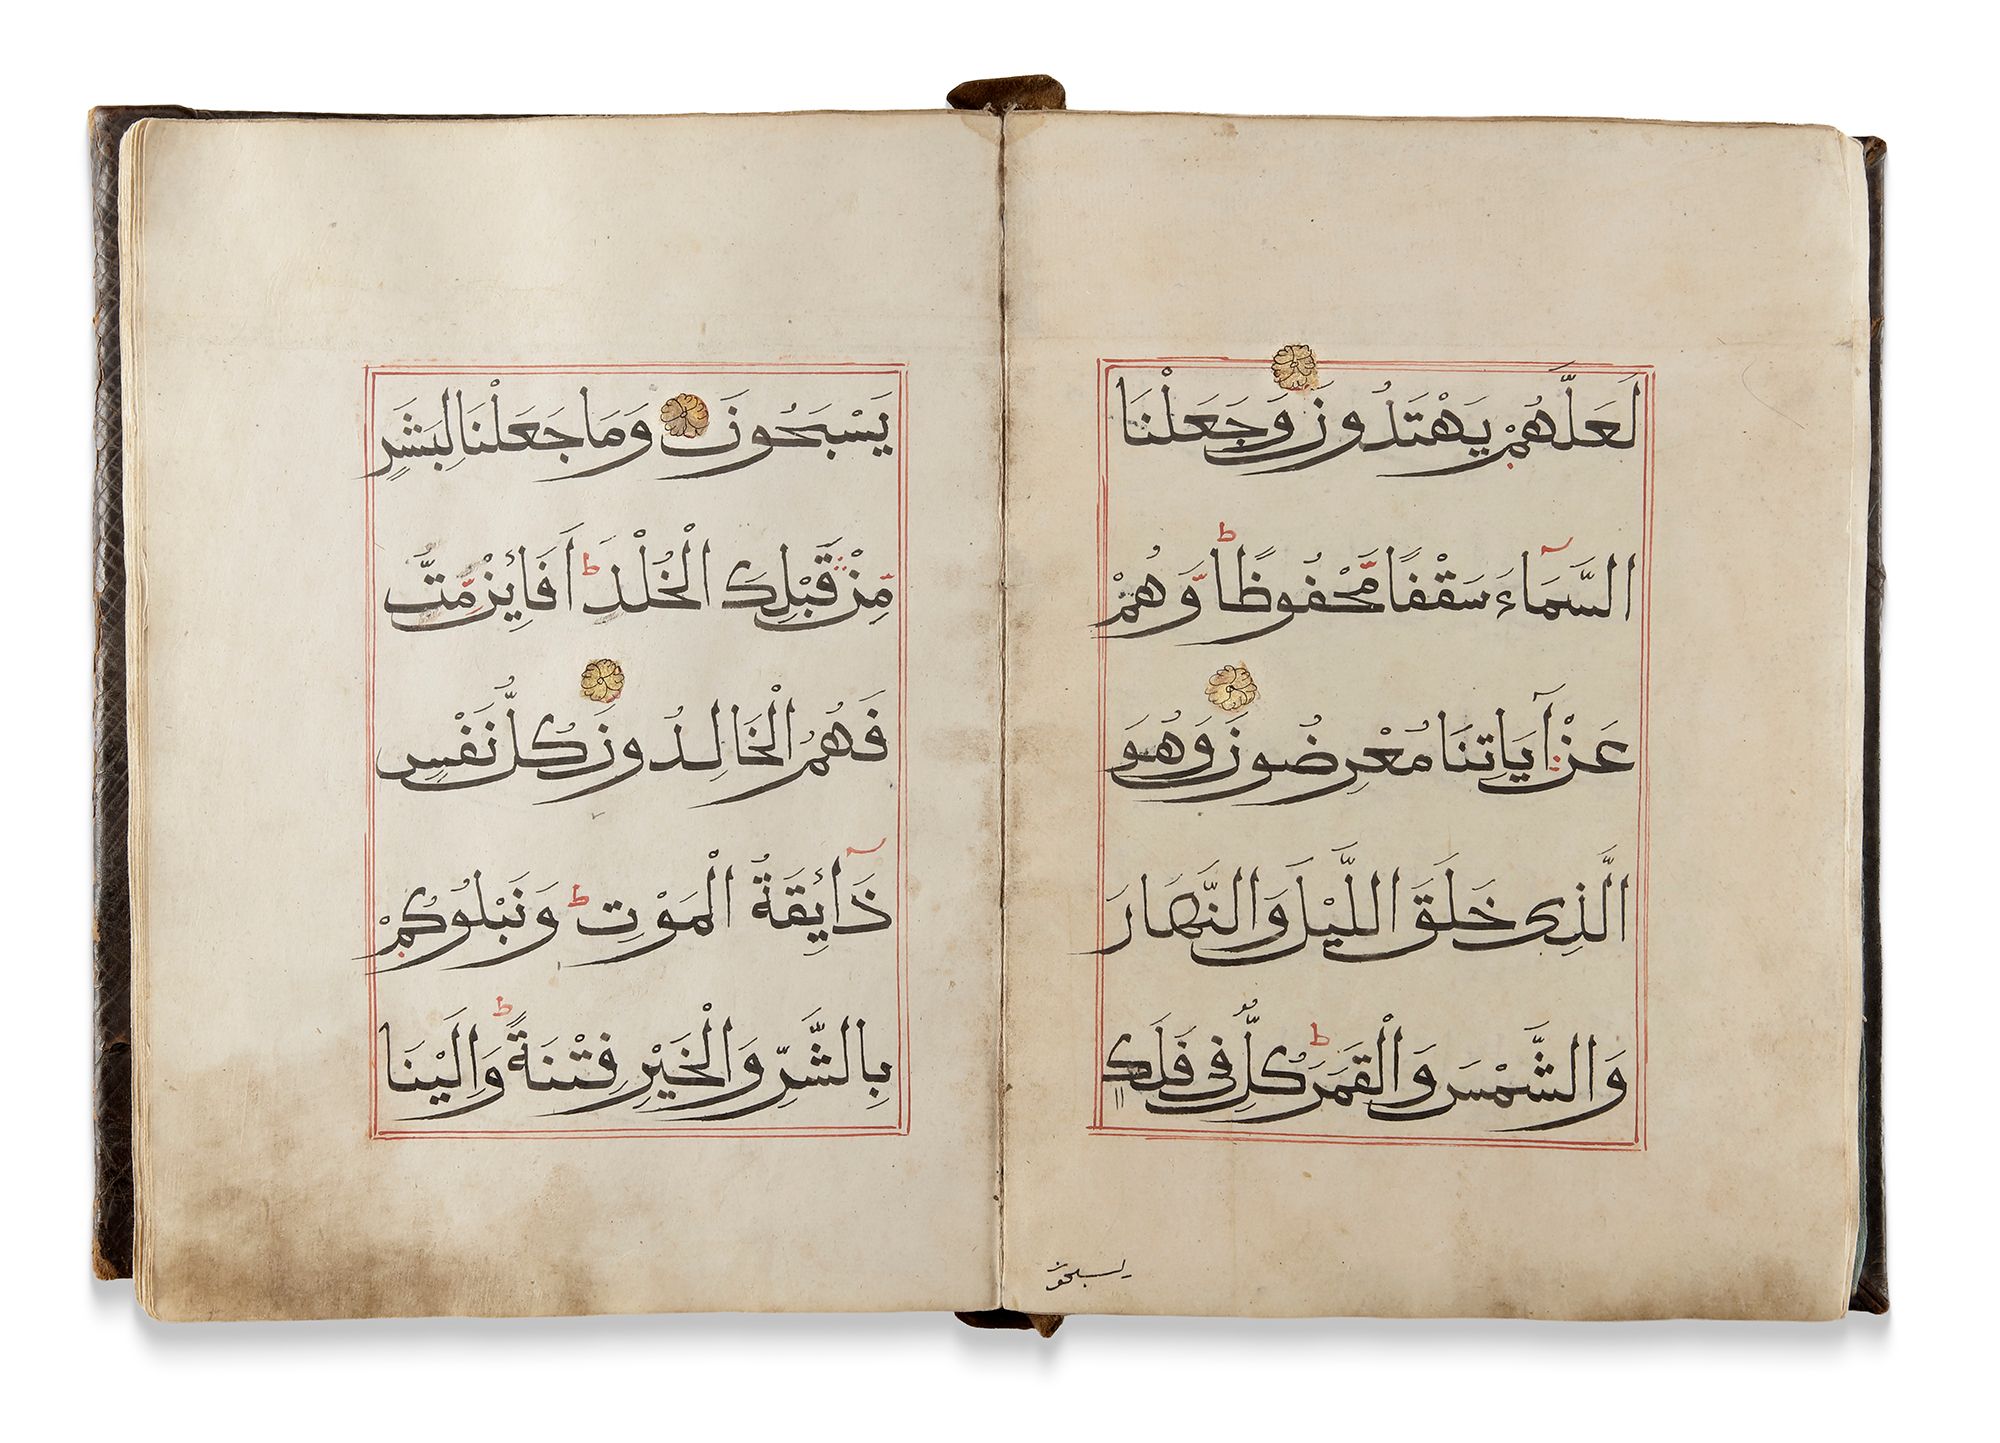 لَعَلَّهُمْ يَهْتَدُونَ وَجَعَلْنَا
السَّمَآءَ سَقْفًا مَّحْفُوظًا ط وَّهُمْ
عَنْ آيَاتِنَا مُعْرِضُونَ وَهُوَ
الَّذِى خَلَقَ اللَّيْلَ وَالنَّهَارَ
وَالشَّمْسَ وَالْقَمَرَ ط كُلٌّ فِى فَلَكٍ
يسبحون
يَسْبَحُونَ وَمَا جَعَلْنَا لِبَشَرٍ
مِّنْ قَبْلِكَ الْخُلْدَ ط اَفَائِنْ مِّتَّ
فَهُمُ الْخَالِدُونَ كُلُّ نَفْسٍ
ذَآئِقَةُ الْمَوْتِ ط وَنَبْلُوكُمْ
بِالشَّرِّ وَالْخَيْرِ فِتْنَةً ط وَاِلَيْنَا